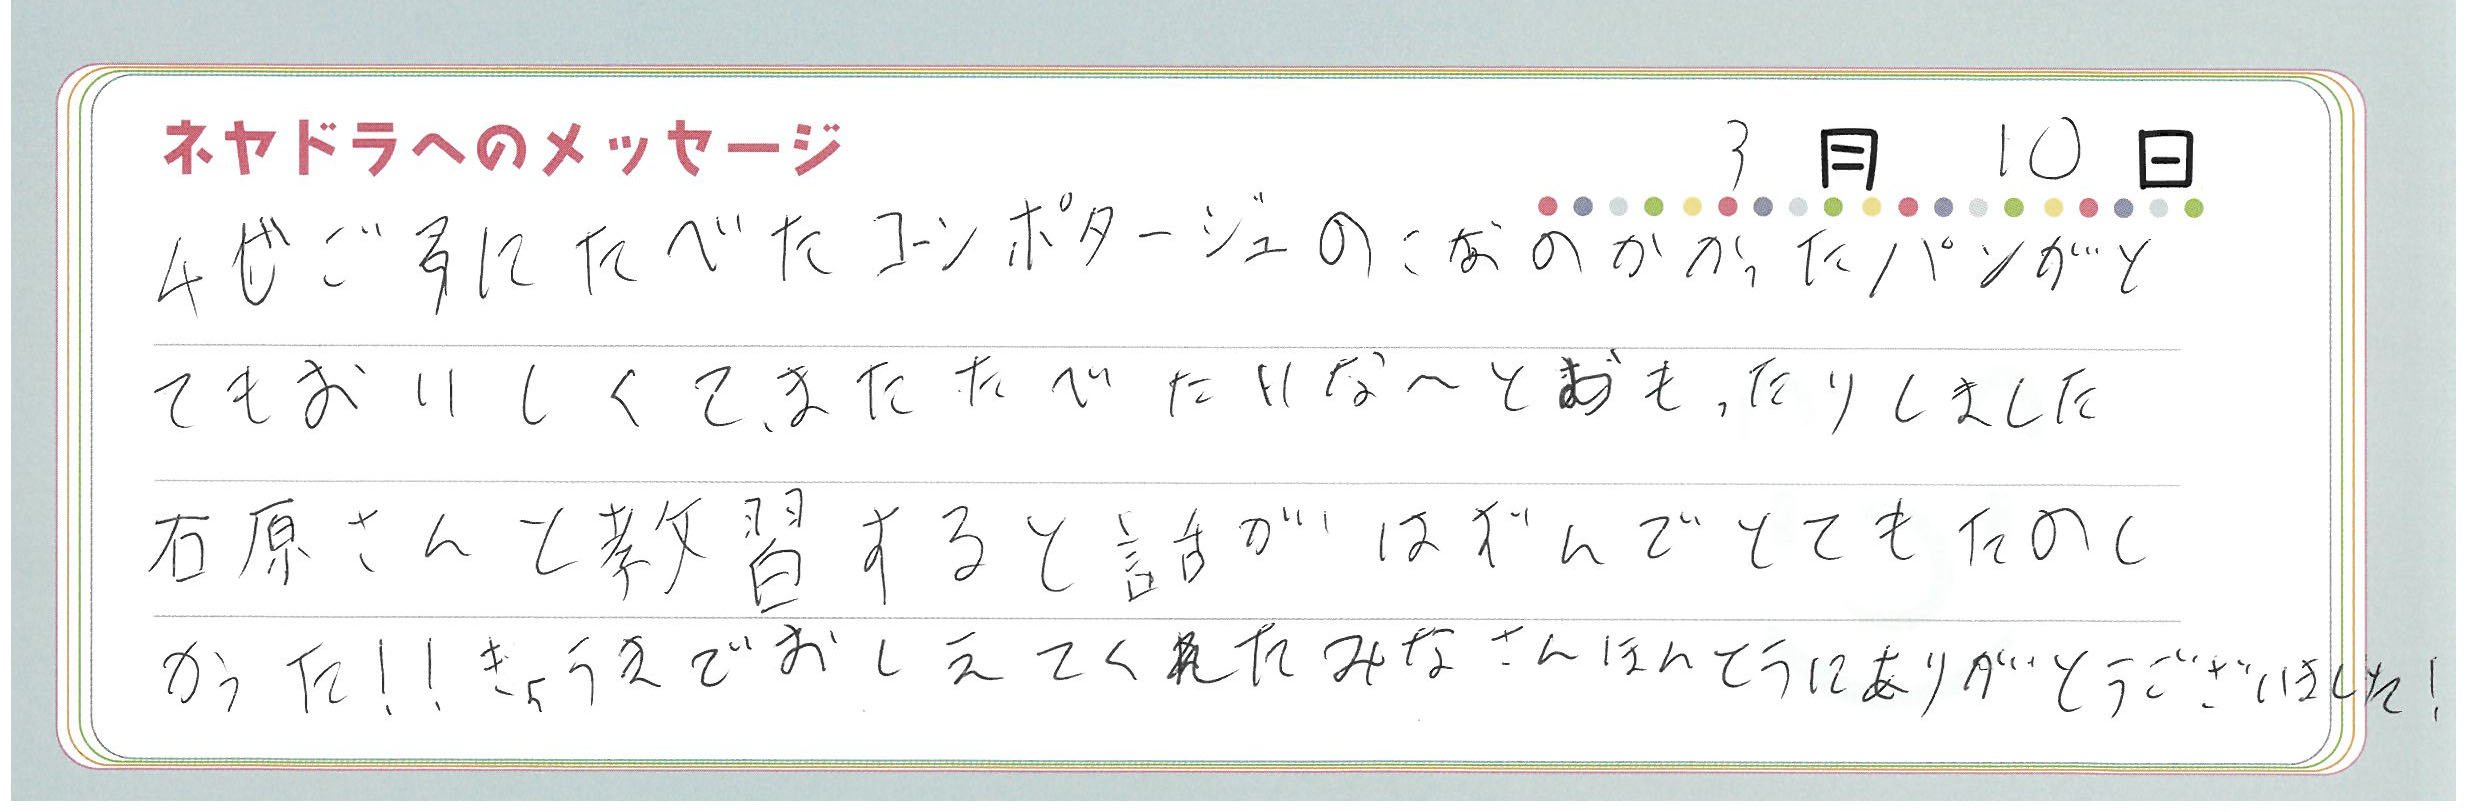 ネヤドラへのメッセージ
3月 10日
4ぜごろにたべたコーンポタージュのこなのかかったパンがと
てもおいしくて、またたべたいな〜とおもったりしました
石原さんと教習すると話がはずんでとてもたのし
かった!!きょうえでおしえてくれたみなさんほんとうにありがとうございました!